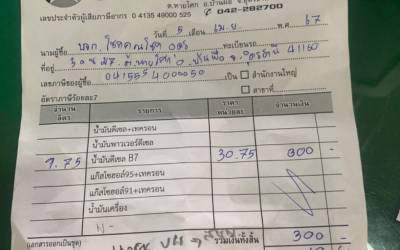 ต.หายโศก อ.บ้านผือ จ.อุดรธานี
เลขประจำตัวผู้เสียภาษีอากร 0 4135 49000 525 042-282700
วันที่ 5 เดือน เม.ย พ.ศ 67
นามผู้ซื้อ บจก. โชค ทะเบียนรถ
ที่อยู่ 308 ม.5 ต.หายโศก อ.บ้านผือ จ.อุดรธานี 41160
เลขภาษีของผู้ซื้อ 041555 4000050 เป็น สำนักงานใหญ่
อัตราภาษีร้อยละ7 สาขาที่
จำนวนลิตร รายการ ราคาหน่วยละ จำนวนเงิน
น้ำมันดีเซล+เทครอน
น้ำมันพาวเวอร์ดีเซล
9.75 น้ำมันดีเซล B7 30.75 300 -
แก๊สโซฮอล์95+เทครอน
แก๊สโซฮอล์91+เทครอน
น้ำมันเครื่อง
(เอกสารออกเป็นชุด) รวมเงินทั้งสิ้น 300 -